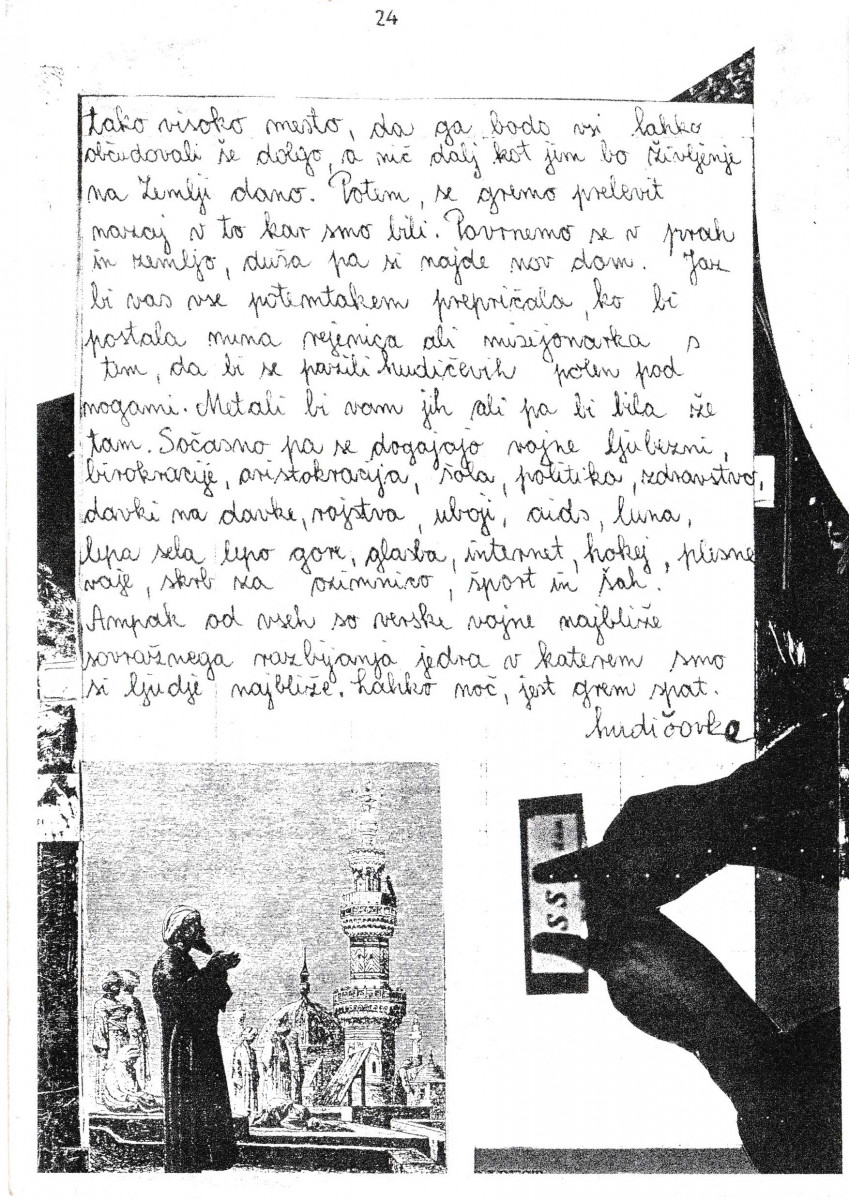 24
tako visoko mesto, da ga bodo vsi lahko
občudovali še dolgo, a nič dalj kot jim bo življenje
na Zemlji dano. Potem, se gremo prelevit
nazaj v to kar smo bili. Povrnemo se v prah
in zemljo, duša pa si najde nov dom. Jaz
bi vas vse potemtakem prepričala, ko bi
postala nuna rejenica ali misejonarka s
tem, da bi se pazili hudičevih polen pod
nogami. Metali bi vam jih ali pa bi bila že
tam. Sočasno pa se dogajajo vojne ljubezni,
birokracije, aristokracija, šola, politika, zdravstvo,
davki na davke, rojstva, uboji, aids, luna,
lepa sela lepo gore, glasba, internet, hokej, plesne
vaje, skrb za ozimnico, šport in šah.
Ampak od vseh so verske vojne najbližje
sovražnega razbijanja jedra v katerem smo
si ljudje najbliže. Lahko noč, jest grem spat.
hudičovka
SS